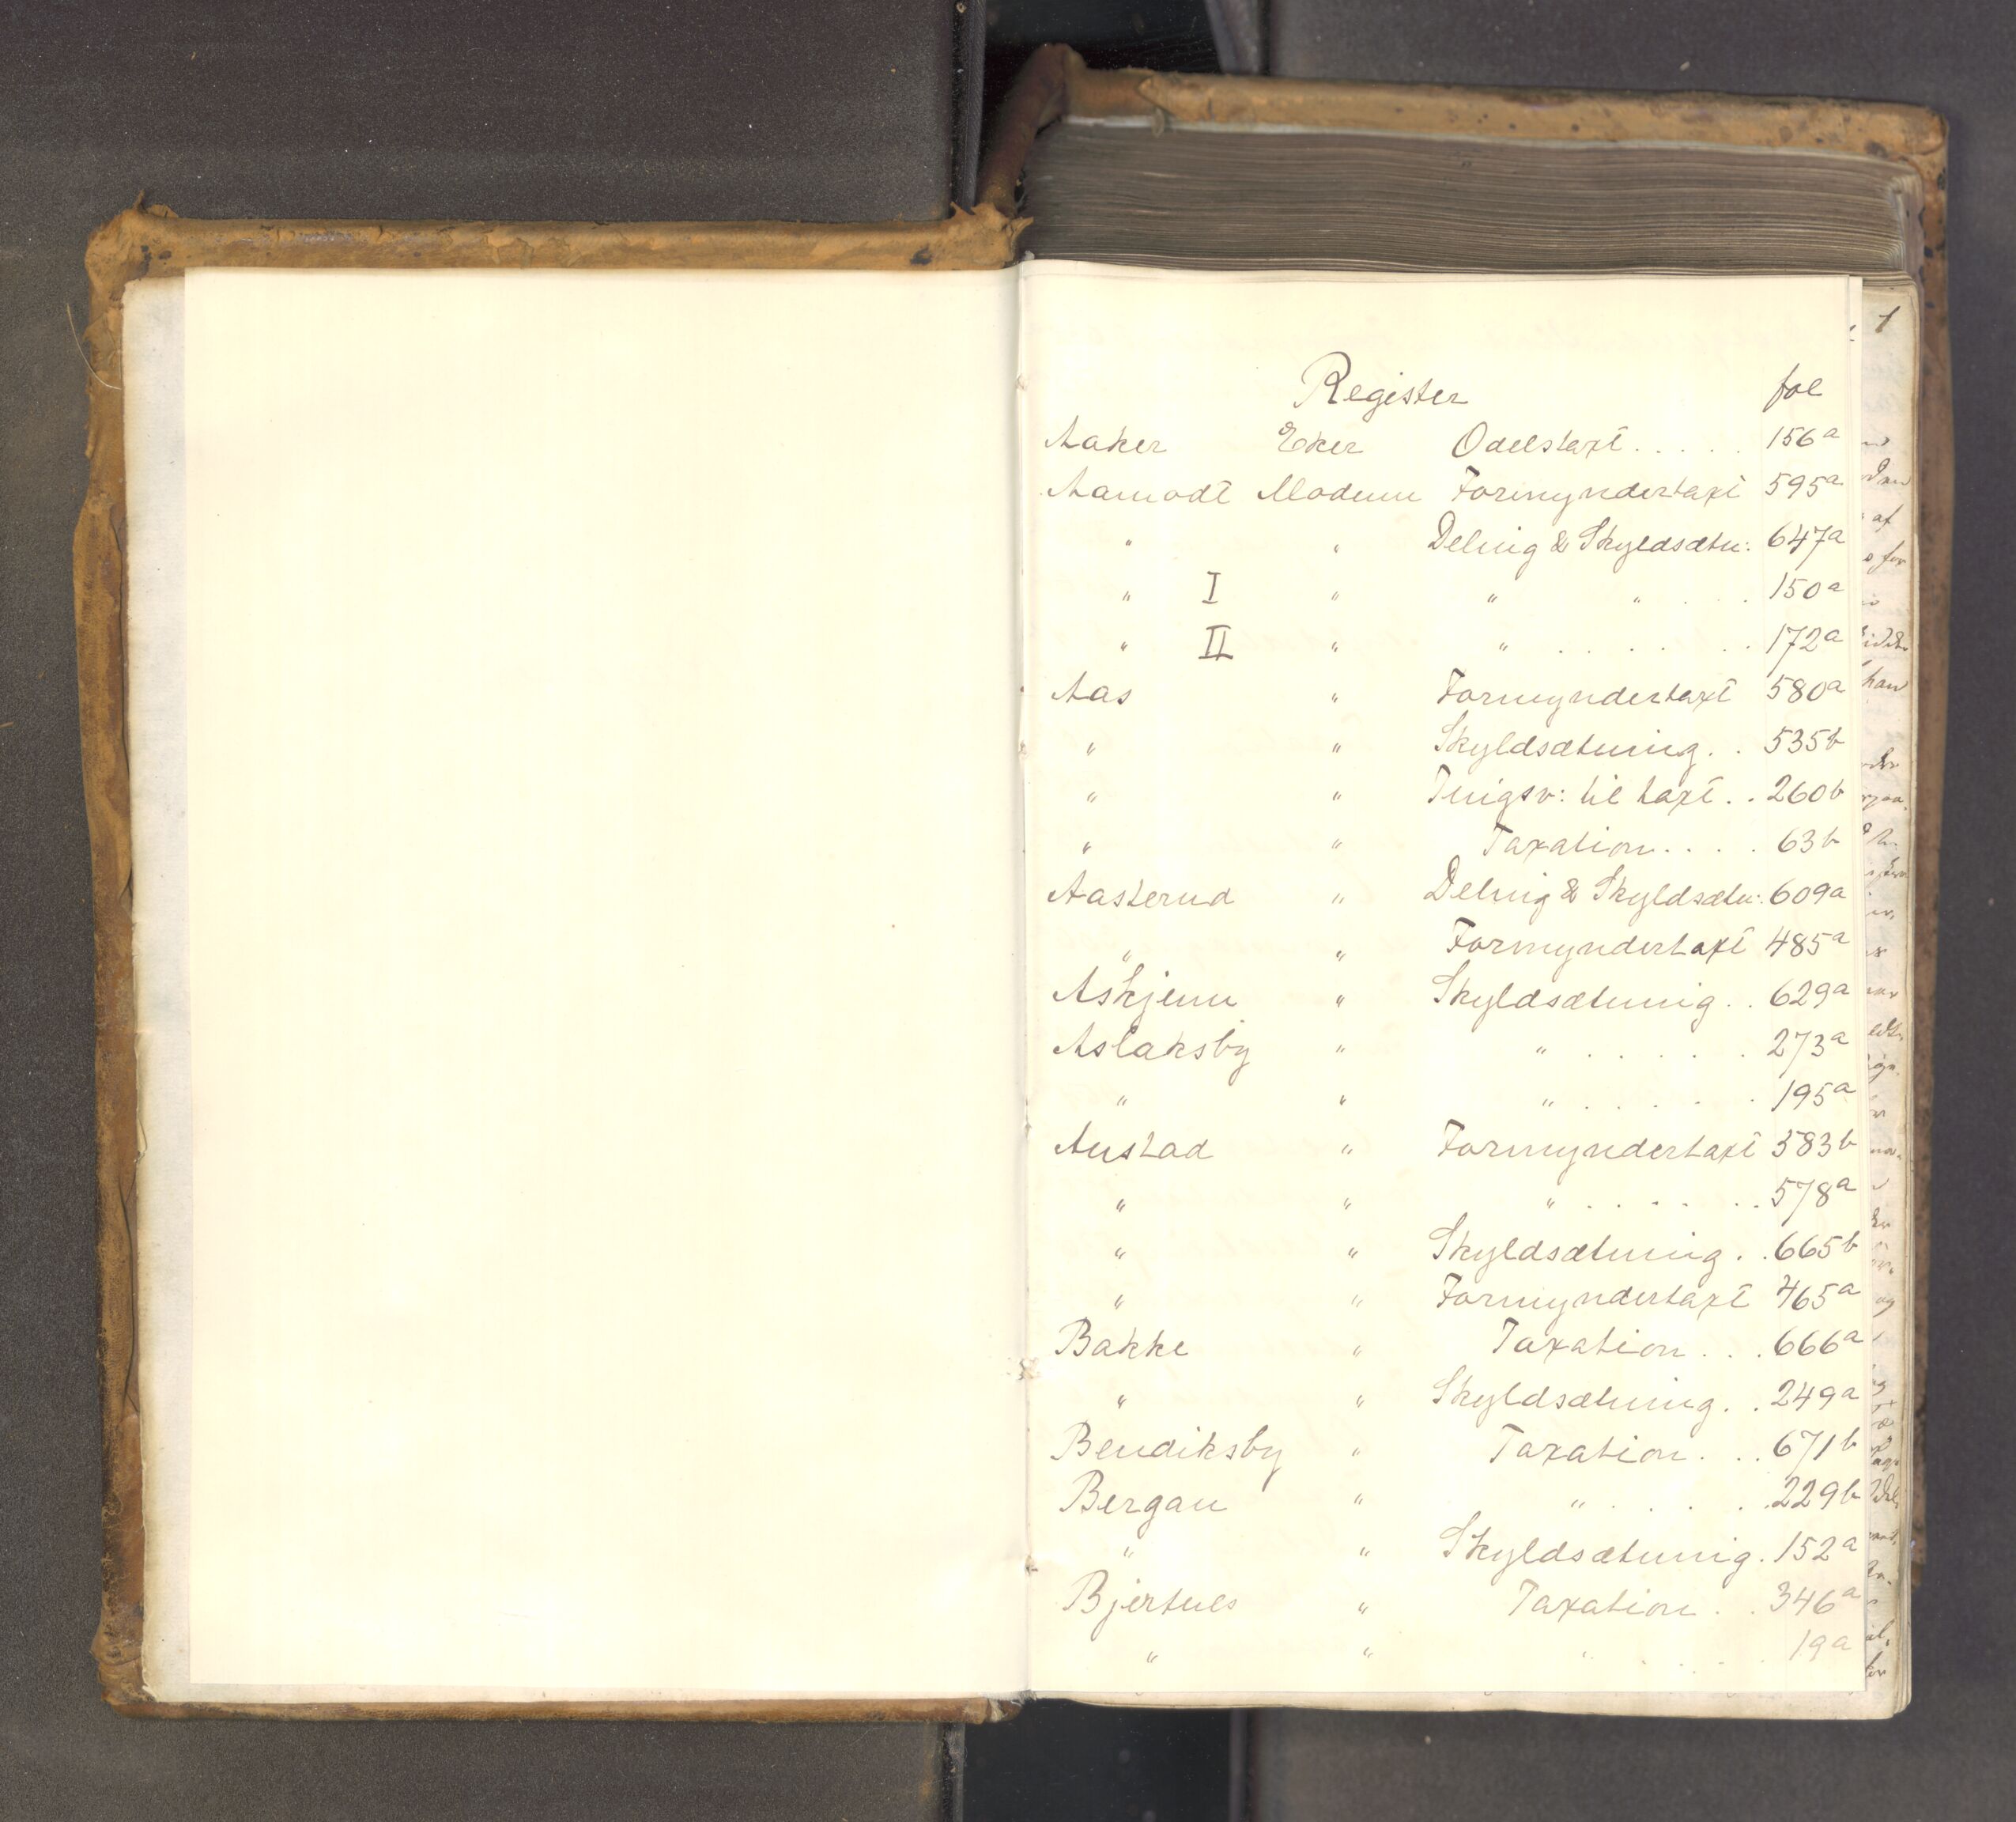 Register fol
Aaker Eker Odelstaxt..... 156a
Aamodt Modum Formyndertaxt 595a
" " Deling & Skyldsætn: 647a
" I " " " ... 150a
" II " " ..... 172a
Aas " Formyndertaxt 580a
" " Skyldsætning.. 535b
" " Tingsv: til taxt.. 260b
" " Taxation.... 63b
Aasterud " Deling & Skyldsætn: 609a
" " Formyndertaxt 485a
Askjem " Skyldsætning.. 629a
Aslaksby " " ..... 273a
" " " ..... 195a
Austad " Formyndertaxt 583b
" " " ..... 578a
" " Skyldsætning.. 665b
" " Formyndertaxt 465a
Bakke " Taxation... 666a
" " Skyldsætning.. 249a
Bendiksby " Taxation... 671b
Bergan " " ..... 229b
" " Skyldsætning. 152a
Bjertnes " Taxation.. 346a
" " " ..... 19a
1
af
han